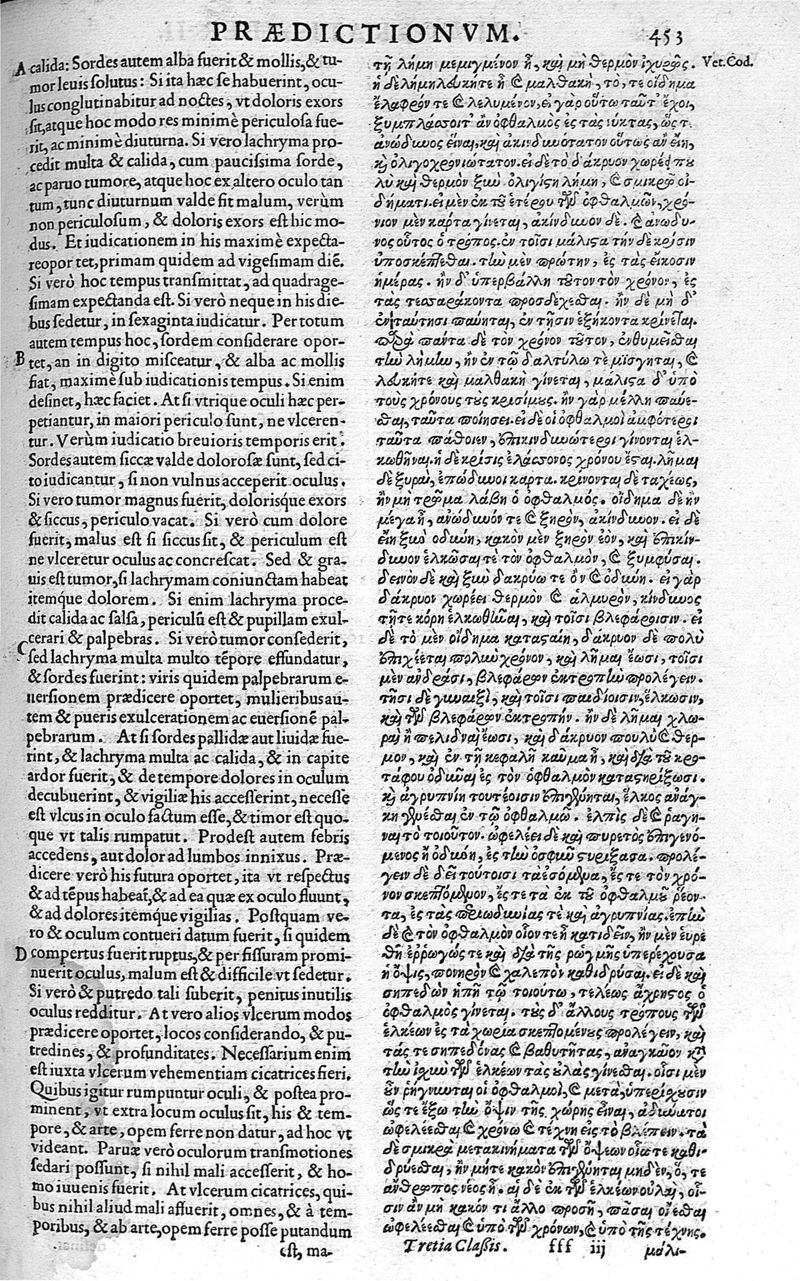 PRÆDICTIONVM.
453
A calida: Sordes autem alba fuerit & mollis, & tu-
mor leuis solutus: Si ita hæc se habuerint, ocu-
lus conglutinabitur ad noctes, vt doloris exors
sit, atque hoc modo res minimè periculosa fue-
rit, ac minimè diuturna. Si vero lachryma pro-
cedit multa & calida, cum paucissima sorde,
ac paruo tumore, atque hoc ex altero oculo tan
tum, tunc diuturnum valde fit malum, verùm
non periculosum, & doloris exors est hic mo-
dus. Et iudicationem in his maximè expecta-
re opor tet, primam quidem ad vigesimam diē.
Si verò hoc tempus transmittat, ad quadrage-
simam expectanda est. Si verò neque in his die-
bus sedetur, in sexaginta iudicatur. Per totum
autem tempus hoc, sordem considerare opor-
B tet, an in digito misceatur, & alba ac mollis
fiat, maximè sub iudicationis tempus. Si enim
desinet, hæc faciet. At si vtrique oculi hæc per-
petiantur, in maiori periculo sunt, ne vlceren-
tur. Verùm iudicatio breuioris temporis erit.
Sordes autem siccæ valde dolorosæ sunt, sed ci-
to iudicantur, si non vulnus acceperit oculus.
Si vero tumor magnus fuerit, dolorisque exors
& siccus, periculo vacat. Si verò cum dolore
fuerit, malus est si siccus sit, & periculum est
ne vlceretur oculus ac concrescat. Sed & gra-
uis est tumor, si lachrymam coniunctam habeat
itemque dolorem. Si enim lachryma proce-
dit calida ac salsa, periculū est & pupillam exul-
cerari & palpebras. Si verò tumor consederit,
C sed lachryma multa multo tēpore effundatur,
& sordes fuerint: viris quidem palpebrarum e-
uersionem prædicere oportet, mulieribus au-
tem & pueris exulcerationem ac euersionē pal-
pebrarum. At si sordes pallidæ aut liuidæ fue-
rint, & lachryma multa ac calida, & in capite
ardor fuerit, & de tempore dolores in oculum
decubuerint, & vigiliæ his accesserint, necesse
est vlcus in oculo factum esse, & timor est quo-
que vt talis rumpatur. Prodest autem febris
accedens, aut dolor ad lumbos innixus. Præ-
dicere verò his futura oportet, ita vt respectus
& ad tēpus habeat, & ad ea quæ ex oculo fluunt,
& ad dolores itemque vigilias. Postquam ve-
ro & oculum contueri datum fuerit, si quidem
D compertus fuerit ruptus, & per fissuram promi-
nuerit oculus, malum est & difficile vt sedetur.
Si verò & putredo tali suberit, penitus inutilis
oculus redditur. At vero alios vlcerum modos
prædicere oportet, locos considerando, & pu-
tredines, & profunditates. Necessarium enim
est iuxta vlcerum vehementiam cicatrices fieri.
Quibus igitur rumpuntur oculi, & postea pro-
minent, vt extra locum oculus sit, his & tem-
pore, & arte, opem ferre non datur, ad hoc vt
videant. Paruæ verò oculorum transmotiones
sedari possunt, si nihil mali accesserit, & ho-
mo iuuenis fuerit. At vlcerum cicatrices, qui-
bus nihil aliud mali affuerit, omnes, & à tem-
poribus, & ab arte, opem ferre posse putandum
est, ma-
τῇ λήμῃ μεμιγμένον ᾖ, καὶ μὴ θερμὸν ἰχυρῶς.
Vet. Cod.
ἡ δὲ λήμη λευκή τε ᾖ καὶ μαλθακὴ, τό, τε οἴδημα
ἐλαφρόν τε καὶ λελυμένον, εἰ γὰρ οὕτω ταῦτ' ἔχοι,
ξυμπλάσσοιτ' ἂν ὀφθαλμὸς ἐς τὰς νύκτας, ὥς τ'
ἀνώδυνος εἶναι, καὶ ἀκινδυνότατον οὕτως ἂν εἴη,
καὶ ὀλιγοχρονιώτατον. εἰ δὲ τὸ δάκρυον χωρέει που
λὺ καὶ θερμὸν ξὺν ὀλιγίστῃ λήμῃ, καὶ σμικρῷ οἰ-
δήματι. εἰ μὲν ἐκ τοῦ ἑτέρου τῶν ὀφθαλμῶν, χρό-
νιον μὲν κάρτα γίνεται, ἀκίνδυνον δέ. καὶ ἀνώδυ-
νος οὗτος ὁ τρόπος. ἐν τοῖσι μάλιστα τὴν δὲ κρίσιν
ὑποσκέπτεσθαι. τὴν μὲν πρώτην, ἐς τὰς εἴκοσιν
ἡμέρας. ἢν δ' ὑπερβάλλῃ τοῦτον τὸν χρόνον, ἐς
τὰς τεσσαράκοντα προσδέχεσθαι. ἢν δὲ μὴ δ'
ἐν ταύτῃσι παύηται, ἐν τῇσιν ἑξήκοντα κρίνεται.
παρὰ πάντα δὲ τὸν χρόνον τοῦτον, ἐνθυμεῖσθαι
τὴν λήμην, ἢν ἐν τῷ δακτύλῳ τε μίσγηται, καὶ
λευκή τε καὶ μαλθακὴ γίνεται, μάλιστα δ' ὑπὸ
τοὺς χρόνους τοὺς κρισίμους. ἢν γὰρ μέλλῃ παύε-
σθαι, ταῦτα ποιήσει. εἰ δὲ οἱ ὀφθαλμοὶ ἀμφότεροι
ταῦτα πάθοιεν, ἐπικινδυνώτεροι γίνονται ἑλ-
κωθῆναι. ἡ δὲ κρίσις ἐλάσσονος χρόνου ἔσται. λῆμαι
δὲ ξηραὶ, ἐπώδυνοι κάρτα. κρίνονται δὲ ταχέως,
ἢν μὴ τρῶμα λάβῃ ὁ ὀφθαλμός. οἴδημα δὲ ἢν
μέγα ᾖ, ἀνώδυνόν τε καὶ ξηρὸν, ἀκίνδυνον. εἰ δὲ
εἴη ξὺν ὀδύνῃ, κακὸν μὲν ξηρὸν ἐὸν, καὶ ἐπικίν-
δυνον ἑλκῶσαί τε τὸν ὀφθαλμὸν, καὶ ξυμφῦσαι.
δεινὸν δὲ καὶ ξὺν δακρύῳ τε ὂν καὶ ὀδύνῃ. εἰ γὰρ
δάκρυον χωρέει θερμὸν καὶ ἁλμυρὸν, κίνδυνος
τῇ τε κόρῃ ἑλκωθῆναι, καὶ τοῖσι βλεφάροισιν. εἰ
δὲ τὸ μὲν οἴδημα κατασταίη, δάκρυον δὲ πολὺ
ἐπιχέεται πολὺν χρόνον, καὶ λῆμαι ἔωσι, τοῖσι
μὲν ἀνδράσι, βλεφάρων ἐκτροπὴν προλέγειν.
τῇσι δὲ γυναιξὶ, καὶ τοῖσι παιδίοισιν, ἕλκωσιν,
καὶ τῶν βλεφάρων ἐκτροπήν. ἢν δὲ λῆμαι χλω-
ραὶ ἢ πελιδναὶ ἔωσι, καὶ δάκρυον πουλὺ καὶ θερ-
μὸν, καὶ ἐν τῇ κεφαλῇ καῦμα ᾖ, καὶ διὰ τοῦ κρο-
τάφου ὀδύναι ἐς τὸν ὀφθαλμὸν καταστηρίξωσι.
καὶ ἀγρυπνίη τουτέοισιν ἐπιγένηται, ἕλκος ἀνάγ-
κη γενέσθαι ἐν τῷ ὀφθαλμῷ. ἐλπὶς δὲ καὶ ῥαγῆ-
ναι τὸ τοιοῦτον. ὠφελέει δὲ καὶ πυρετὸς ἐπιγενό-
μενος ἢ ὀδύνη, ἐς τὴν ὀσφὺν στηρίξασα. προλέ-
γειν δὲ δεῖ τούτοισι τὰ ἐσόμενα, ἔς τε τὸν χρό-
νον σκεπτόμενον, ἔς τε τὰ ἐκ τοῦ ὀφθαλμοῦ ῥέον-
τα, ἐς τὰς περιωδυνίας τε καὶ ἀγρυπνίας. ἐπὴν
δὲ καὶ τὸν ὀφθαλμὸν οἷόν τε ᾖ κατιδεῖν, ἢν μὲν εὑρε-
θῇ ἐρρωγώς τε καὶ διὰ τῆς ῥωγμῆς ὑπερέχουσα
ἡ ὄψις, πονηρὸν καὶ χαλεπὸν καθιδρῦσαι. εἰ δὲ καὶ
σηπεδὼν ὑπῇ τῷ τοιούτῳ, τελέως ἄχρηστος ὁ
ὀφθαλμὸς γίνεται. τοὺς δ' ἄλλους τρόπους τῶν
ἑλκέων ἐς τὰ χωρία σκεπτόμενους προλέγειν, καὶ
τάς τε σηπεδόνας καὶ βαθυτῆτας, ἀναγκαῖον κατὰ
τὴν ἰσχὺν τῶν ἑλκέων τὰς οὐλὰς γίνεσθαι. οἷσι μὲν
οὖν ῥήγνωνται οἱ ὀφθαλμοὶ, καὶ μετὰ, ὑπερίσχουσιν
ὥς τε ἔξω τὴν ὄψιν τῆς χώρης εἶναι, ἀδύνατοι
ὠφελέεσθαι καὶ χρόνῳ καὶ τέχνῃ εἰς τὸ βλέπειν. τὰ
δὲ σμικρὰ μετακινήματα τῶν ὄψεων οἷά τε καθι-
δρύεσθαι, ἢν μήτε κακὸν ἐπιγένηται μηδὲν, ὅ, τε
ἄνθρωπος νέος ᾖ. αἱ δὲ ἐκ τῶν ἑλκέων οὐλαὶ, οἷ-
σιν ἂν μὴ κακόν τι ἄλλο προσῇ, πᾶσαι οἷαί τε
ὠφελέεσθαι καὶ ὑπὸ τῶν χρόνων, καὶ ὑπὸ τῆς τέχνης.
Tretia Classis. fff iij
μάλι-